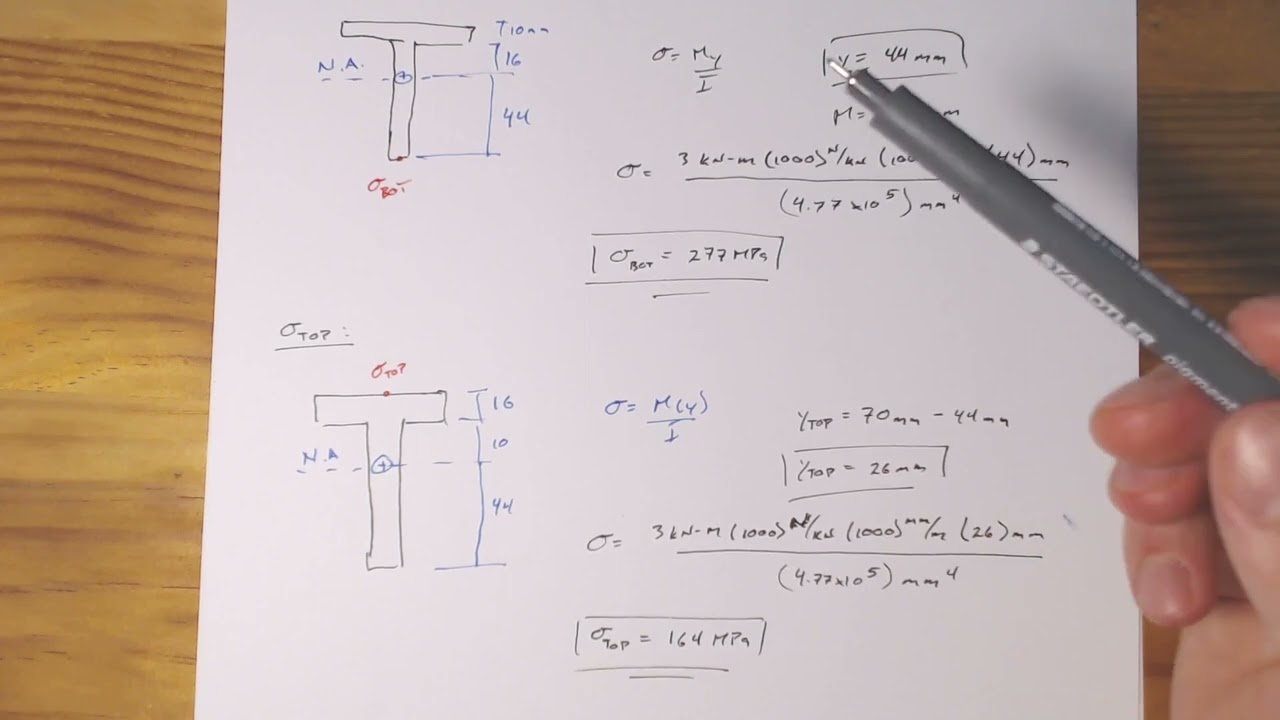 10mm
16
N.A.
44
σBOT
σ= My/I
y= 44mm
M= m
σ= 3 kN-m (1000) N/kN (100 44) mm / (4.77x10^5) mm^4
σBOT = 277 MPa
σTOP :
σTOP
16
10
N.A
44
σ= M(y)/I
yTOP = 70mm - 44mm
yTOP = 26mm
σ= 3 kN-M (1000) N/kN (1000) mm/m (26) mm / (4.77x10^5) mm^4
σTOP = 164 MPa
STAEDTLER pigment